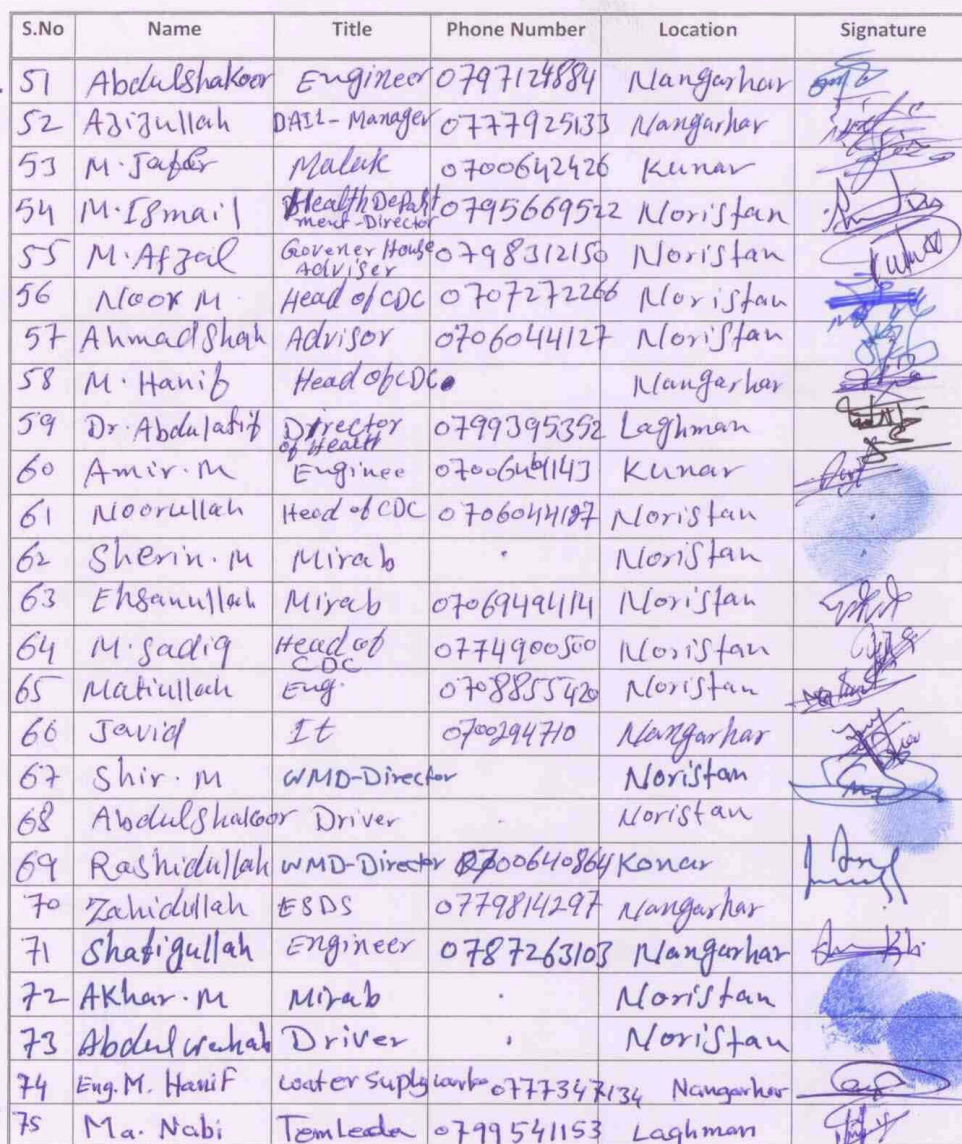 S.No Name Title Phone Number Location Signature
51 Abdulshakoor Engineer 0797124884 Nangarhar
52 Azizullah DAIL-Manager 0777925133 Nangarhar
53 M.Jafer Malak 0700642426 Kunar
54 M.Ismail Health Depart
ment-Director 0795669522 Noristan
55 M.Afzail Govener House
Adviser 0798312150 Noristan
56 Noor M. Head of CDC 0707272266 Noristan
57 Ahmad Shah Advisor 0706044127 Noristan
58 M.Hanif Head of CDC Nangarhar
59 Dr.Abdulatif Director
of Health 0799395352 Laghman
60 Amir.M Enginee Kunar
61 Noorullah Head of CDC Noristan
62 Sherin.M Mirab Noristan
63 Ehsanullah Mirab 0706949414 Noristan
64 M.Sadiq Head of
CDC 0774900500 Noristan
65 Matiullah Eng. 0708855420 Noristan
66 Javid It 0700294710 Nangarhar
67 Shir.M WMD-Director Noristan
68 Abdulshakoor Driver Noristan
69 Rashidullah WMD-Director 0700640864 Konar
70 Zahidullah ESDS 0779814297 Nangarhar
71 Shafiqullah Engineer 0787263103 Nangarhar
72 AKhar.M Mirab Noristan
73 Abdulwahab Driver Noristan
74 Eng.M. Hanif water suply 0777347134 Nangarhar
75 Ma. Nabi TemLeader 0799541153 Laghman